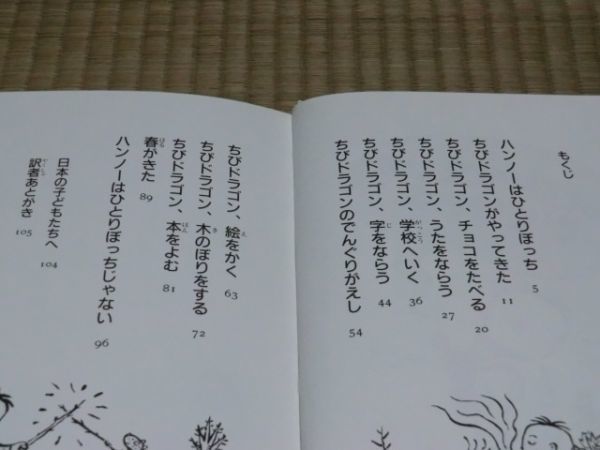 もくじ
ハンノーはひとりぼっち 5
ちびドラゴンがやってきた 11
ちびドラゴン、チョコをたべる 20
ちびドラゴン、うたをならう 27
ちびドラゴン、学校へいく 36
ちびドラゴン、字をならう 44
ちびドラゴンのでんぐりがえし 54
ちびドラゴン、絵をかく 63
ちびドラゴン、木のぼりをする 72
ちびドラゴン、本をよむ 81
春がきた 89
ハンノーはひとりぼっちじゃない 96
日本の子どもたちへ 104
訳者あとがき 105